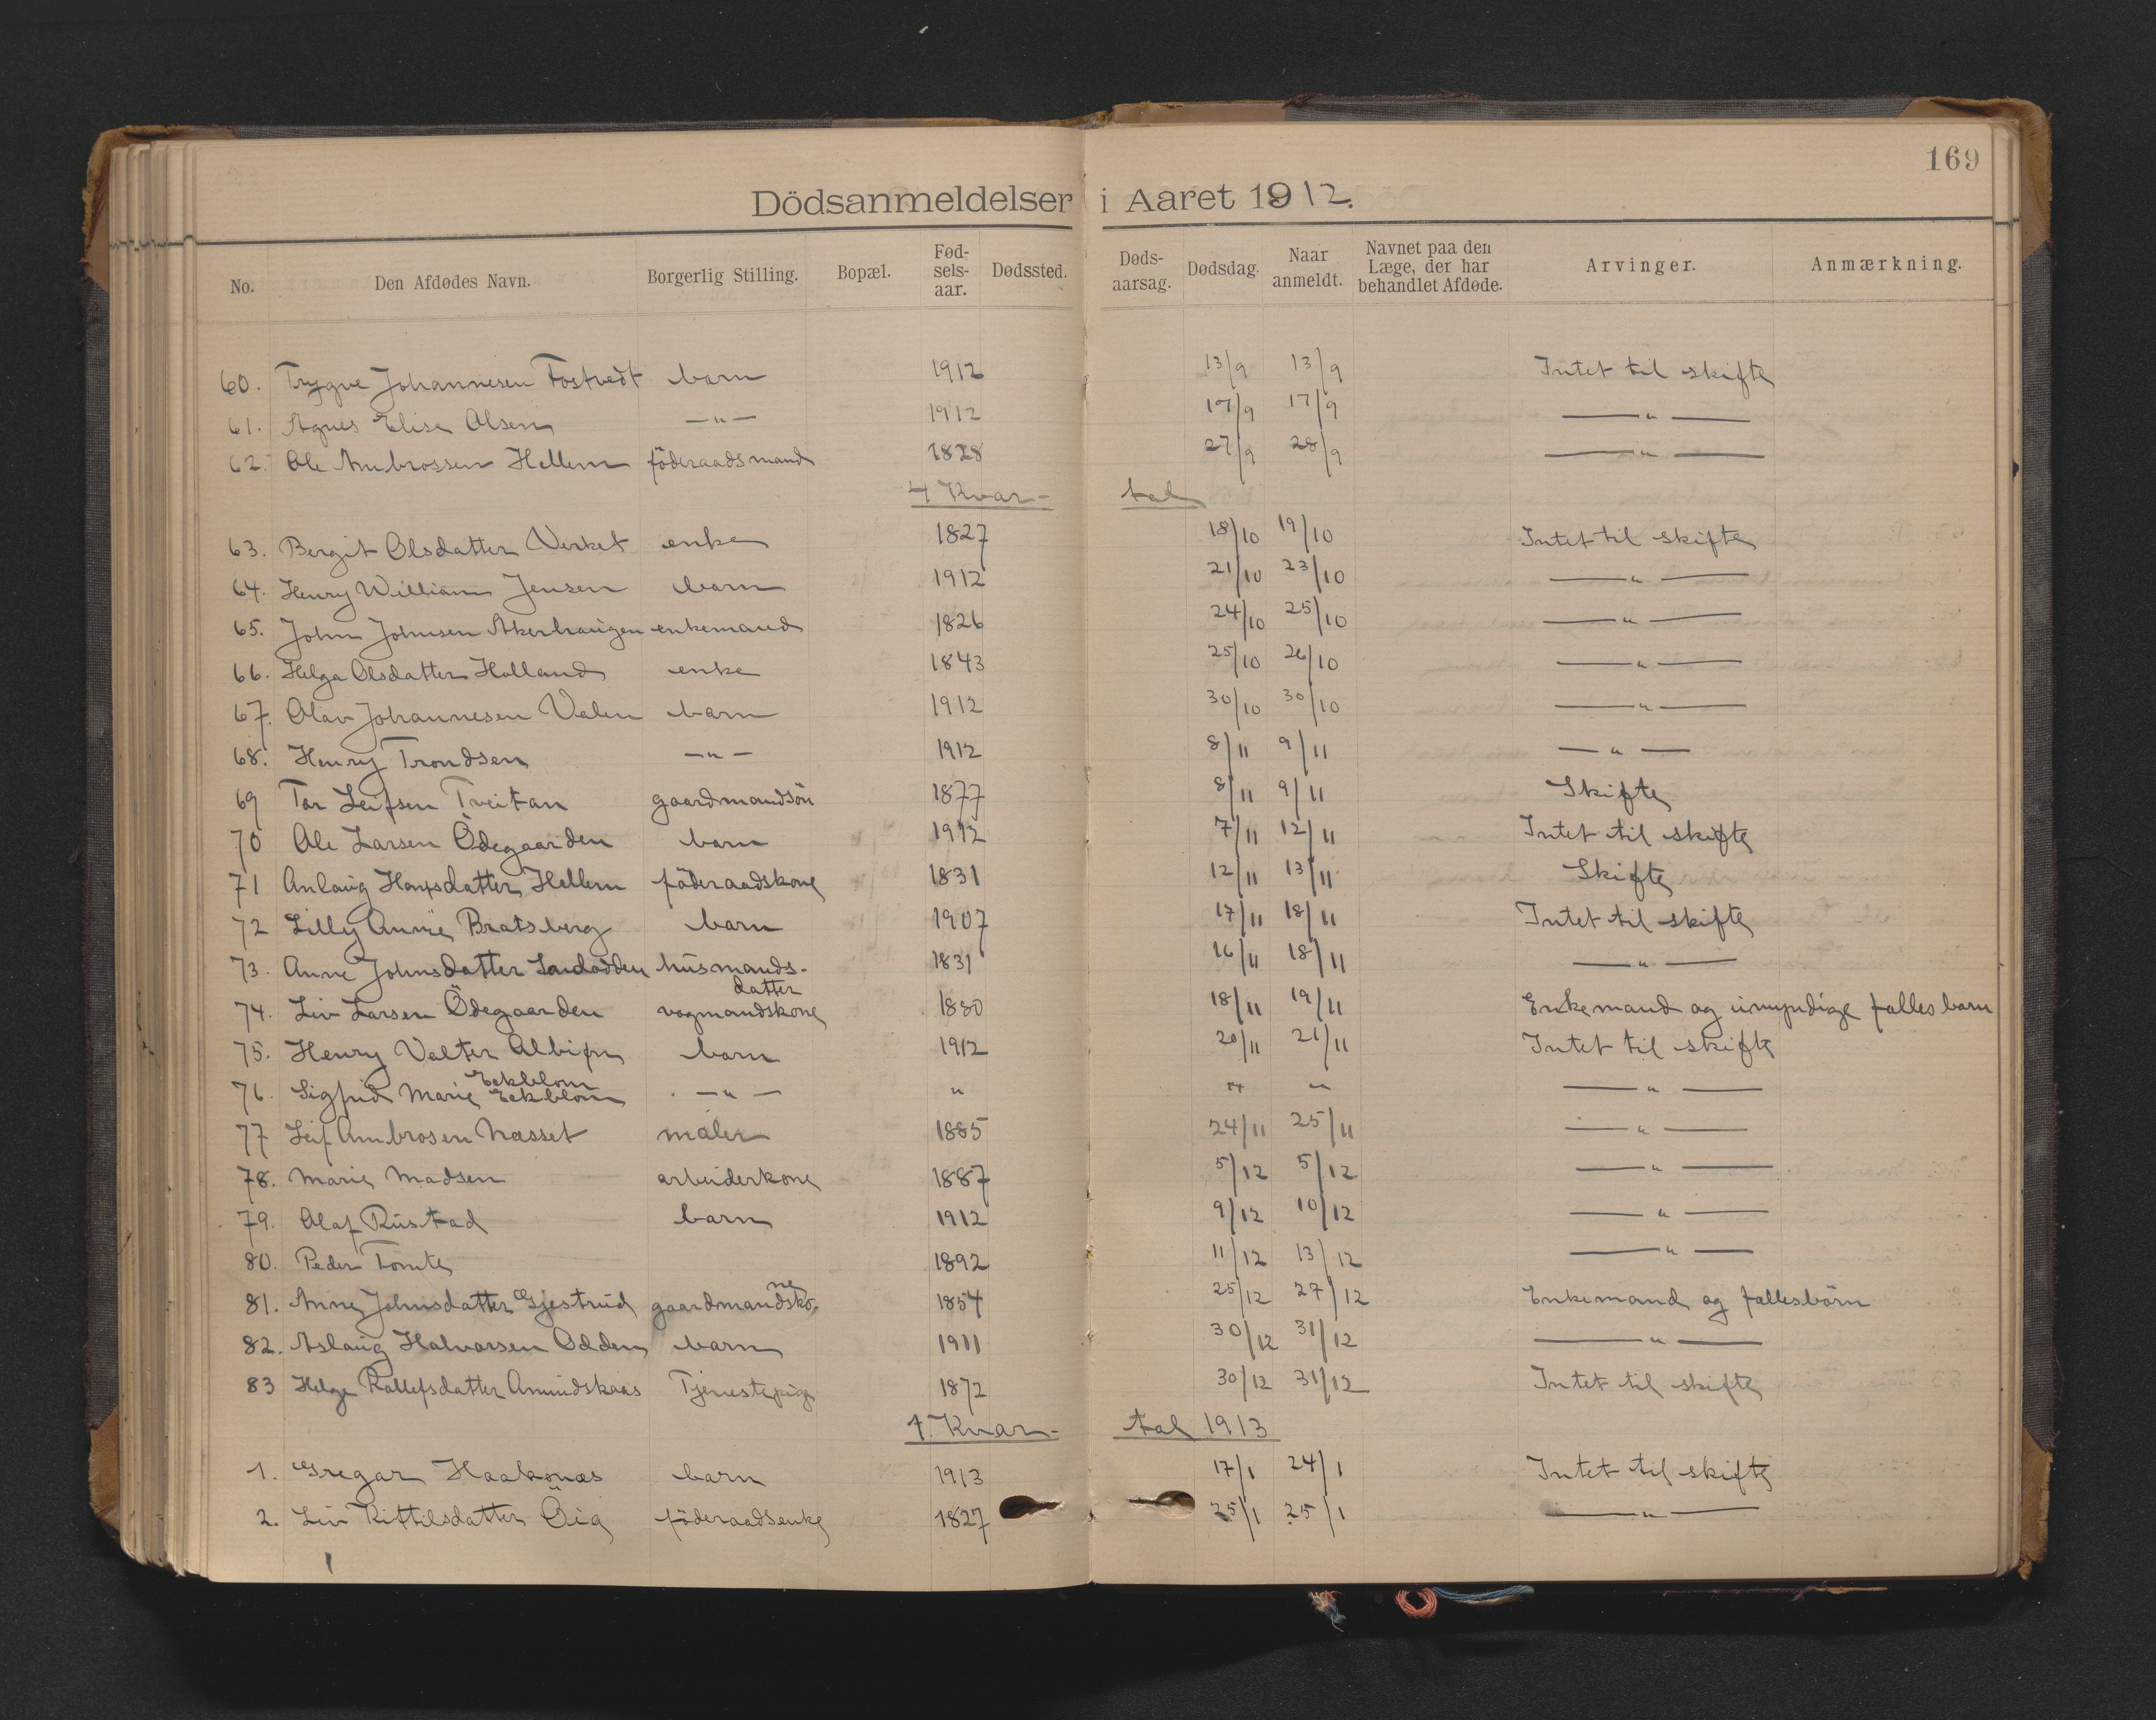 169
Dödsanmeldelser i Aaret 1912.
No. Den Afdødes Navn. Borgerlig Stilling. Bopæl. Fød-sels-aar. Dødssted. Døds-aarsag. Dødsdag. Naar anmeldt. Navnet paa den Læge, der har behandlet Afdøde. Arvinger. Anmærkning.
60. Trygve Johannesen Fostvedt barn 1912 13/9 13/9 Intet til skifte
61. Agnes Elise Olsen —"— 1912 17/9 17/9 —"—
62. Ole Ambrossen Hellem föderaadsmand 1828 27/9 28/9 —"—
4 Kvar- tal
63. Bergit Olsdatter Verket enke 1827 18/10 19/10 Intet til skifte
64. Henry William Jensen barn 1912 21/10 23/10 —"—
65. John Johnsen Akerhaugen enkemand 1826 24/10 25/10 —"—
66. Helga Olsdatter Holland enke 1843 25/10 26/10 —"—
67. Olav Johannesen Valen barn 1912 30/10 30/10 —"—
68. Henry Trondsen —"— 1912 8/11 9/11 —"—
69 Tor Leifsen Tveitan gaardmandsön 1877 8/11 9/11 Skifte
70 Ole Larsen Ödegaarden barn 1912 7/11 12/11 Intet til skifte
71 Anlaug Hansdatter Hellem föderaadskone 1831 12/11 13/11 Skifte
72 Lilly Annie Bratsberg barn 1907 17/11 18/11 Intet til skifte
73. Anne Johnsdatter husmands- 1831 16/11 18/11 —"—
datter
74. Liv Larsen Ödegaarden vogmandskone 1880 18/11 19/11 Enkemand og umyndige falles barn
75. Henry Valter barn 1912 20/11 21/11 Intet til skifte
Eckblom
76. Sigfrid Marie Eckblom —"— " " " —"—
77 Leif Ambrosen Næsset maler 1885 24/11 25/11 —"—
78. Marie Madsen arbeiderkone 1887 5/12 5/12 —"—
79. Olaf Rustad barn 1912 9/12 10/12 —"—
80. Peder Tomte 1892 11/12 13/12 —"—
ne
81. Anne Johnsdatter Gjestrud gaardmandsko- 1854 25/12 27/12 Enkemand og fallesbörn
82. Aslaug Halvorsen Odden barn 1911 30/12 31/12 —"—
83 Helge Rollefsdatter Amundskaas Tjenestepige 1872 30/12 31/12 Intet til skifte
1. Kvar- tal 1913
1. Gregar Haakonæs barn 1913 17/1 24/1 Intet til skifte
2. Liv Kittilsdatter Öig föderaadsenke 1827 25/1 25/1 —"—